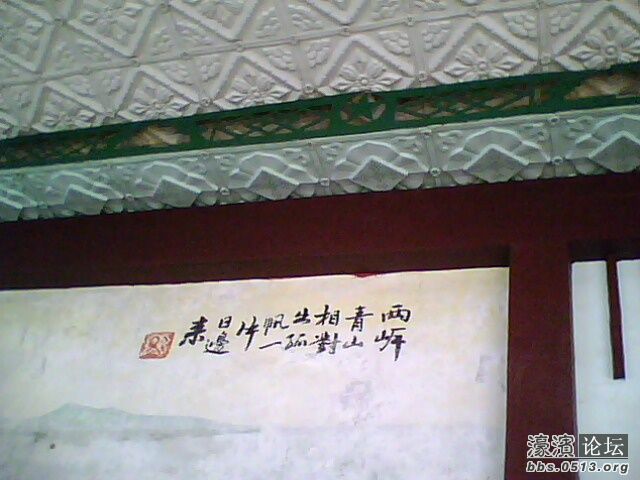 两岸
青山
相對
出孤
帆一
片
日邊
来
濠濱论坛
bbs.0513.org